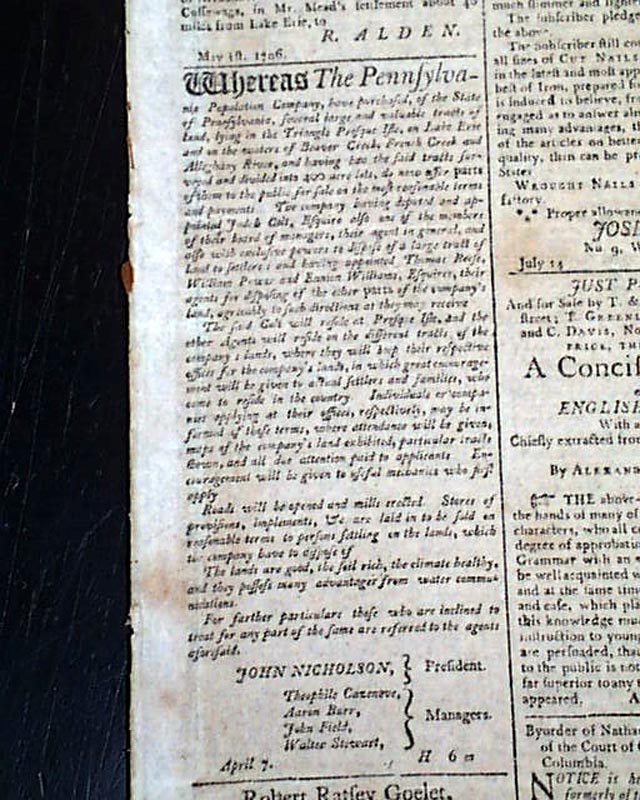 Cussewago, in Mr. Mead's settlement about 40
miles from Lake Erie, to
R. ALDEN.
May 1st. 1796.
Whereas The Pennsylva-
nia Population Company, have purchased, of the State
of Pennsylvania, several large and valuable tracts of
land, lying in the Triangle Presque Isle, on Lake Erie
and on the waters of Beaver Creek, French Creek and
Alleghany River, and having had the said tracts sur-
veyed and divided into 400 acre lots, do now offer parts
of them to the public for sale on the most reasonable terms
and payments The company having deputed and ap-
pointed Judah Colt, Esquire also one of the members
of their board of managers, their agent in general, and
also with exclusive powers to dispose of a large tract of
land to settlers; and having appointed Thomas Reese,
William Power and Ennion Williams, Esquires, their
agents for disposing of the other parts of the company's
land, agreeably to such directions as they may receive
The said Colt will reside at Presque Isle, and the
other Agents will reside on the different tracts, of the
company's lands, where they will keep their respective
offices for the company's lands, in which great encourage-
ment will be given to actual settlers and families, who
come to reside in the country. Individuals or compa-
nies applying at their offices, respectively, may be in-
formed of those terms, where attendance will be given,
maps of the company's land exhibited, particular tracts
shown, and all due attention paid to applicants En-
couragement will be given to useful mechanics who just
apply
Roads will be opened and mills erected. Stores of
provisions, implements, &c are laid in to be sold on
reasonable terms to persons settling on the lands, which
the company have to dispose of
The lands are good, the soil rich, the climate healthy,
and they possess many advantages from water commu-
nications.
For further particulars those who are inclined to
treat for any part of the same are referred to the agents
aforesaid.
JOHN NICHOLSON, } President.
Theophile Cazenove,
Aaron Burr,
John Field,
Walter Stewart,
} Managers.
April 7. H 6 m
Robert Ratsey Goelet,
much summer and
The subscriber pledg
the above.
The Subscriber still con
all sizes of CUT NAILS
in the latest and most app
best of Iron, prepared
is induced to believe, fr
engaged as to answer
ing many advantages, th
of the articles on bette
quality, than can be pr
States
WROUGHT NAILS
factory.
*** Proper allowan
JOSI
No 9, W
July 14
JUST P
And for Sale by T. &
street; T. GREENL
and C. DAVIS, No
PRICE, TH
A Concis
ENGLISH
With a
Chiefly extracted fro
By ALEXAND
THE above
the hands of many of
characters, who all co
degree of approbatio
Grammar with an
be well acquainted w
and at the same tim
and ease, which pla
this knowledge mu
instruction to young
are persuaded, tha
to the public is not
far superior to any t
appeared. A
By order of Natha
of the Court of
Columbia.
NOTICE is h
formerly of